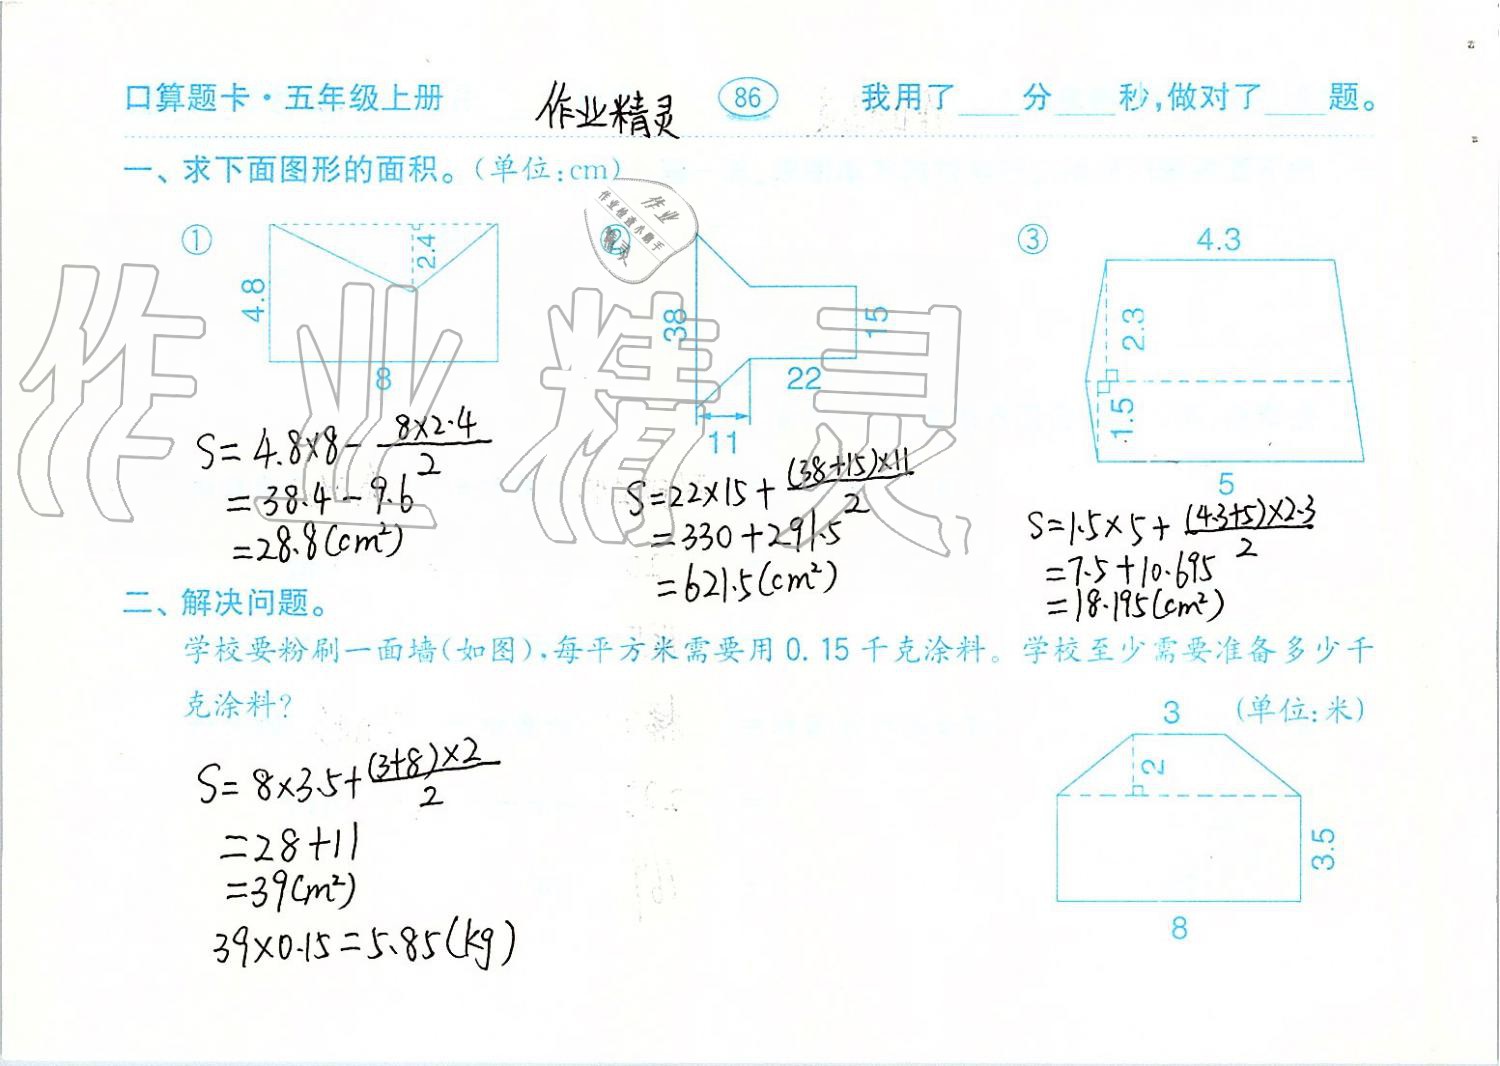 口算题卡·五年级上册 作业精灵 86 我用了____分____秒,做对了____题。
一、求下面图形的面积。(单位:cm)
作业
作业检查小助手
精灵
① 4.8 2.4 8
② 38 15 22 11
③ 4.3 2.3 1.5 5
作业精灵
S=4.8×8-8×2.4/2
=38.4-9.6
=28.8(cm²)
S=22×15+(38+15)×11/2
=330+291.5
=621.5(cm²)
S=1.5×5+(4.3+5)×2.3/2
=7.5+10.695
=18.195(cm²)
二、解决问题。
学校要粉刷一面墙(如图),每平方米需要用0.15千克涂料。学校至少需要准备多少千
克涂料?
(单位:米)
3
2
3.5
8
S=8×3.5+(3+8)×2/2
=28+11
=39(m²)
39×0.15=5.85(kg)